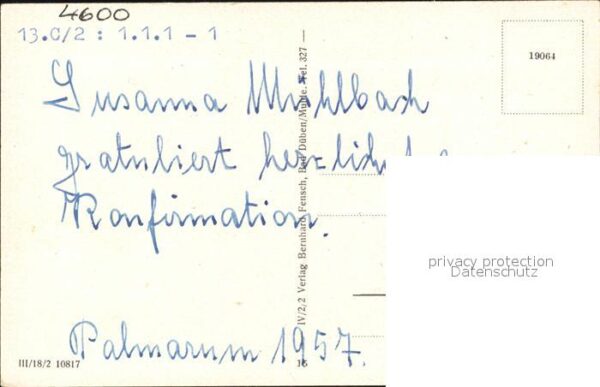 4600
13.C/2 : 1.1.1 - 1
19064
Susanna Mühlbach
gratuliert herzlich
Konfirmation.
Palmarum 1957.
III/18/2 10817
IV/2/2 Verlag Bernhard Fensch, Bad Düben/Mulde. Tel. 327 —
privacy protection
Datenschutz